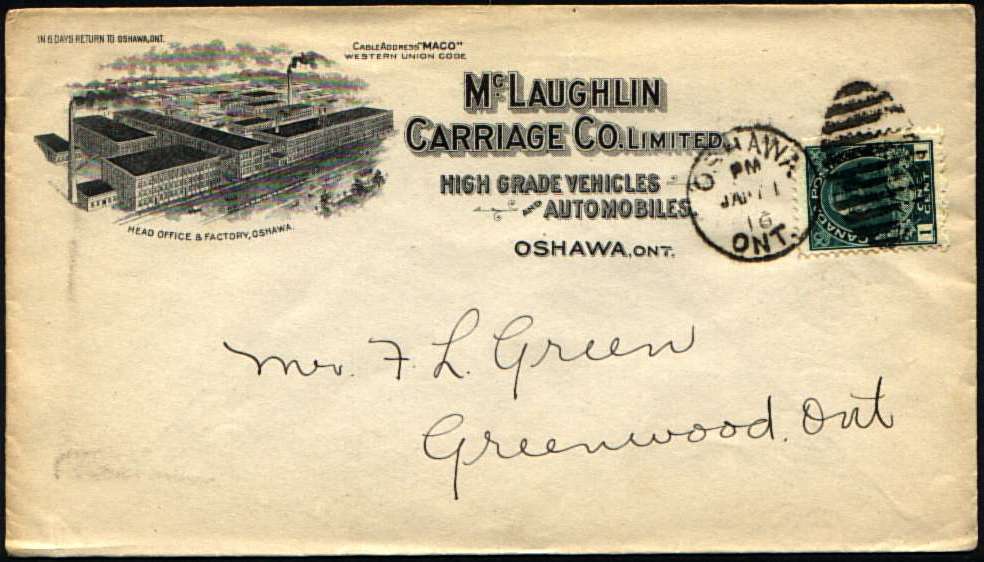 IN 5 DAYS RETURN TO OSHAWA, ONT.
CABLE ADDRESS "MACO"
WESTERN UNION CODE
McLAUGHLIN
CARRIAGE CO. LIMITED
HIGH GRADE VEHICLES
AND AUTOMOBILES
OSHAWA, ONT.
HEAD OFFICE & FACTORY, OSHAWA.
OSHAWA.
PM
16
ONT.
CANADA
1
Mr. F. L. Green
Greenwood. Ont